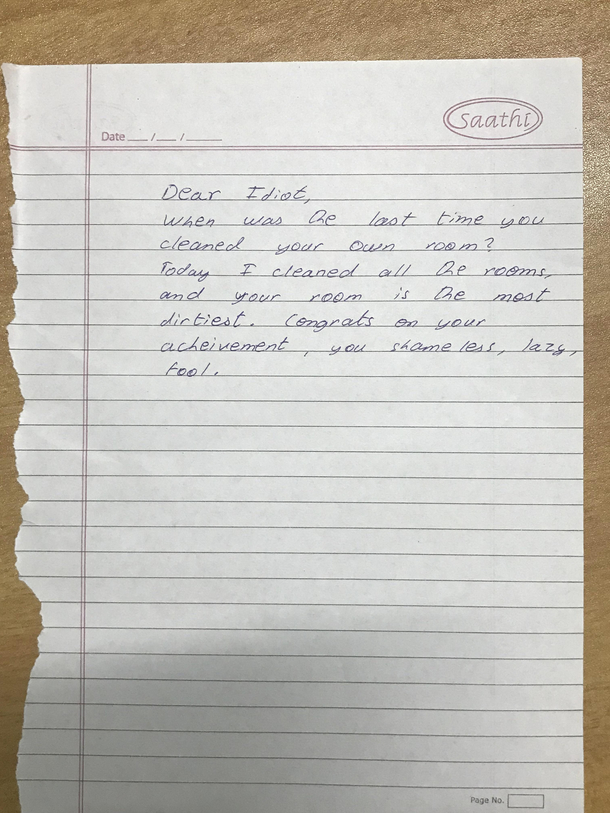 saathi
Date __/__/____
Dear Idiot,
When was the last time you
cleaned your own room?
Today I cleaned all the rooms,
and your room is the most
dirtiest. Congrats on your
acheivement, you shameless, lazy,
fool.
Page No.